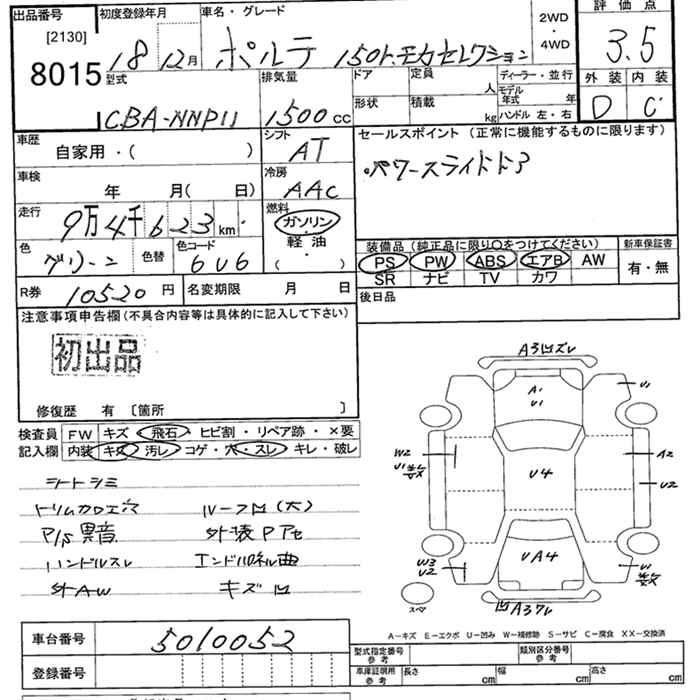 出品番号 初度登録年月 車名・グレード 2WD・4WD 評価点
[2130]
8015 18 12月 ポルテ 150r モカセレクション 3.5
外装 内装
D C
型式 排気量 ドア 定員 人 ディーラー・並行
モデル年式 年
CBA-NNP11 1500 CC 形状 積載 kg ハンドル 左・右
車歴 シフト セールスポイント (正常に機能するものに限ります)
自家用・( ) AT パワースライドドア
車検 冷房
年 月( 日) AAC
走行 燃料
9万4千623km ガソリン
軽・油
( )
色 色替 色コード
グリーン 6U6
装備品 (純正品に限り○をつけてください) 新車保証書
PS PW ABS エアB AW 有・無
SR ナビ TV カワ
R券 10520円 名変期限 月 日 後日品
注意事項申告欄(不具合内容等は具体的に記入して下さい)
初出品
修復歴 有 [箇所 ]
検査員 FW キズ・飛石・ヒビ割・リペア跡・×要
記入欄 内装 キズ 汚レ・コゲ・穴・スレ・キレ・破レ
シートシミ
トリム加工穴 ルーフ凹(大)
P/S異音 外装Pアセ
ハンドルスレ エンドパネル曲
外AW キズ凹
A3凹ズレ
A1
U1
U1
W2
U1
A2
U4
U2
W3
U2
UA4
U1
スペア
凹A3ズレ
A-キズ E-エクボ U-凹み W-補修跡 S-サビ C-腐食 XX-交換済
車台番号 5010052
登録番号
型式指定番号 参考 類別区分番号 参考
車庫証明用 参考 長さ cm 幅 cm 高さ cm